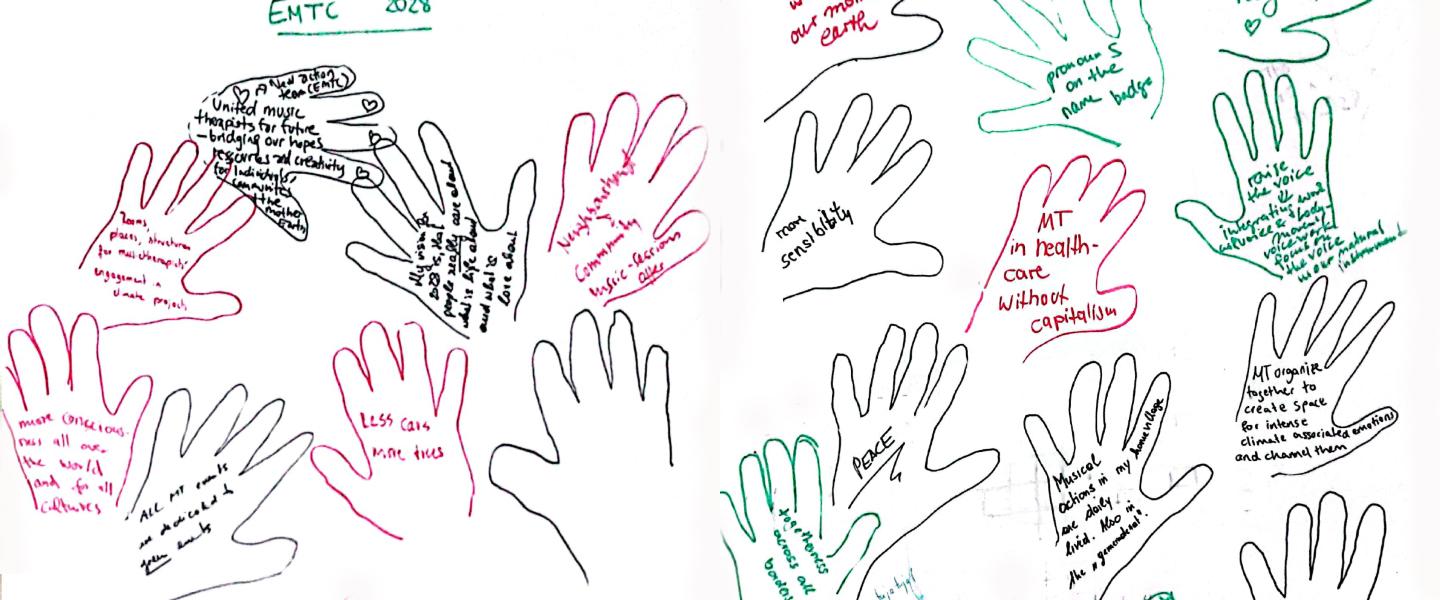 EMTC 2028
A New action
team (EMTC)
United music
therapists for future
- bridging our hopes
resources and creativity
for individuals,
communities
the mother
Earth
Rooms,
places, structures
for musictherapists'
engagement in
climate projects
My vision for
2028 is, that
people really care about
what is life about
and what is
love about
Neighbourhood
Community
Music-sessions
after
more conscious-
ness all over
the world
and for all
cultures
ALL MT events
are dedicated to
green events
Less cars
more trees
our
earth
pronouns
on the
name badge
more
sensibility
MT
in health-
care
without
capitalism
raise
the voice
integrative work
voice & body-
movement
voicework
focus on
the voice
as our natural
instrument
PEACE
togetherness
across all
borders
Musical
actions in my home village
are daily
lived. Also in
the "gemeinderat".
MT organize
together to
create space
for intense
climate associated emotions
and channel them